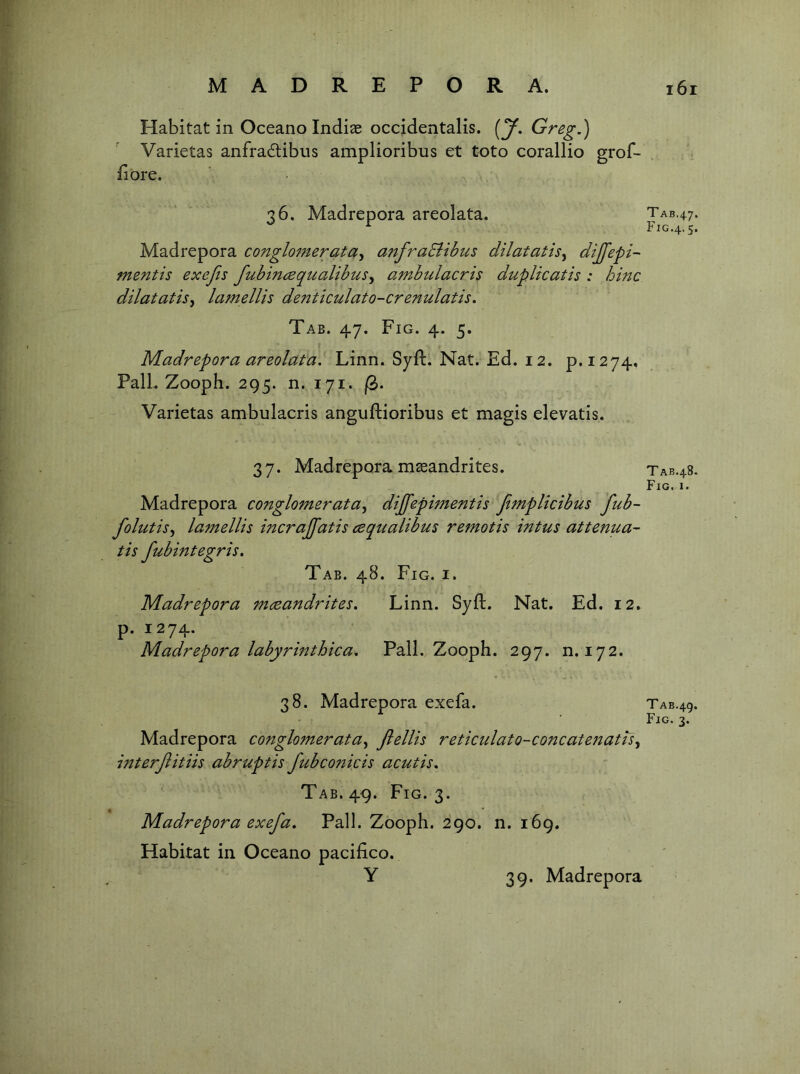 MADREPORA. 161
Habitat in Oceano Indiæ occidentalis. (J. Greg.)
Varietas anfractibus amplioribus et toto corallio groſ-
ſiore.
36. Madrepora areolata. TAB.47.
FIG.4.5.
Madrepora conglomerata, anfractibus dilatatis, diſſepi-
mentis exeſis ſubinæqualibus, ambulacris duplicatis : hinc
dilatatis, lamellis denticulato-crenulatis.
TAB. 47. FIG. 4. 5.
Madrepora areolata. Linn. Syſt. Nat. Ed. 12. p. 1274,
Pall. Zooph. 295. n. 171. β.
Varietas ambulacris anguſtioribus et magis elevatis.
37. Madrepora mæandrites. TAB.48.
FIG. 1.
Madrepora conglomerata, diſſepimentis ſimplicibus ſub-
ſolutis, lamellis incraſſatis æqualibus remotis intus attenua-
tis ſubintegris.
TAB. 48. FIG. 1.
Madrepora mæandrites. Linn. Syſt. Nat. Ed. 12.
p. 1274.
Madrepora labyrinthica. Pall. Zooph. 297. n. 172.
38. Madrepora exeſa. TAB.49.
FIG. 3.
Madrepora conglomerata, ſtellis reticulato-concatenatis,
interſtitiis abruptis ſubconicis acutis.
TAB. 49. FIG. 3.
Madrepora exeſa. Pall. Zooph. 290. n. 169.
Habitat in Oceano pacifico.
Y 39. Madrepora